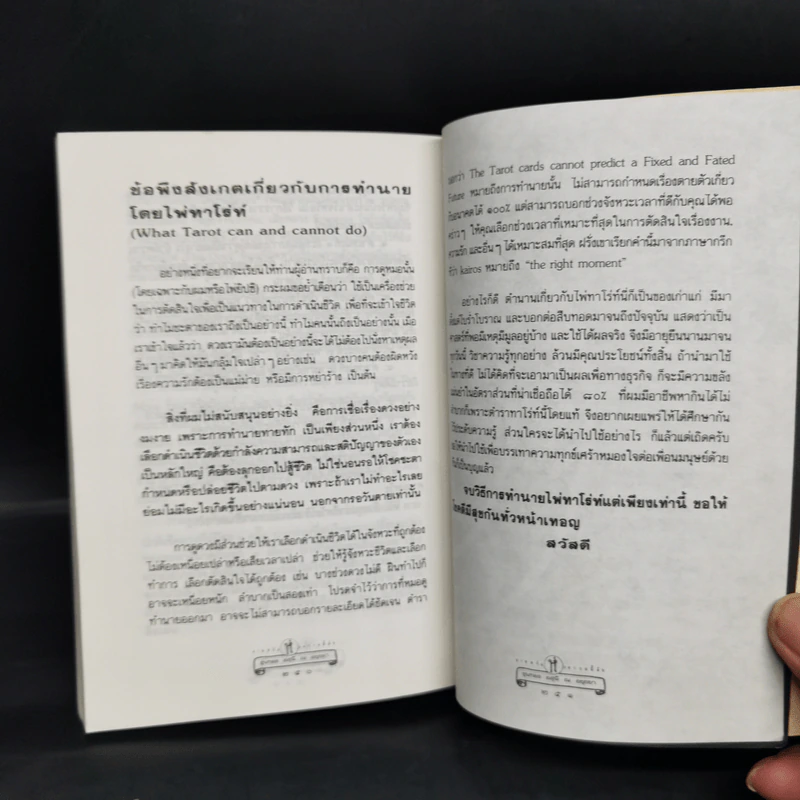 ข้อพึงสังเกตเกี่ยวกับการทำนาย
โดยไพ่ทาโร่ท์
(What Tarot can and cannot do)
อย่างหนึ่งที่อยากจะเรียนให้ท่านผู้อ่านทราบก็คือ การดูหมอนั้น
(โดยเฉพาะกับผมหรือไพ่ยิปซี) กระผมขอย้ำเตือนว่า ใช้เป็นเครื่องช่วย
ในการตัดสินใจเพื่อเป็นแนวทางในการดำเนินชีวิต เพื่อที่จะเข้าใจชีวิต
ว่า ทำไมชะตาของเราถึงเป็นอย่างนี้ ทำไมคนนั้นถึงเป็นอย่างนั้น เมื่อ
เราเข้าใจแล้วว่า ดวงเรามันต้องเป็นอย่างนี้จะได้ไม่ต้องไปนั่งหาเหตุผล
อื่น ๆ มาคิดให้มันกลุ้มใจเปล่า ๆ อย่างเช่น ดวงบางคนต้องผิดหวัง
เรื่องความรักต้องเป็นแม่ม่าย หรือมีการหย่าร้าง เป็นต้น
สิ่งที่ผมไม่สนับสนุนอย่างยิ่ง คือการเชื่อเรื่องดวงอย่าง
งมงาย เพราะการทำนายทายทัก เป็นเพียงส่วนหนึ่ง เราต้อง
เลือกดำเนินชีวิตด้วยกำลังความสามารถและสติปัญญาของตัวเอง
เป็นหลักใหญ่ คือต้องลุกออกไปสู้ชีวิต ไม่ใช่นอนรอให้โชคชะตา
กำหนดหรือปล่อยชีวิตไปตามดวง เพราะถ้าเราไม่ทำอะไรเลย
ย่อมไม่มีอะไรเกิดขึ้นอย่างแน่นอน นอกจากรอวันตายเท่านั้น
การดูดวงมีส่วนช่วยให้เราเลือกดำเนินชีวิตได้ในจังหวะที่ถูกต้อง
ไม่ต้องเหนื่อยเปล่าหรือเสียเวลาเปล่า ช่วยให้รู้จังหวะชีวิตและเลือก
ทำการ เลือกตัดสินใจได้ถูกต้อง เช่น บางช่วงดวงไม่ดี ฝืนทำไปก็
อาจจะเหนื่อยหนัก ลำบากเป็นสองเท่า โปรดจำไว้ว่าการที่หมอดู
ทำนายออกมา อาจจะไม่สามารถบอกรายละเอียดได้ชัดเจน ตำรา
The Tarot cards cannot predict a Fixed and Fated
Future หมายถึงการทำนายนั้น ไม่สามารถกำหนดเรื่องตายตัวเกี่ยว
กับอนาคตได้ ๑๐๐% แต่สามารถบอกช่วงจังหวะเวลาที่ดีกับคุณได้พอ
คร่าว ๆ ให้คุณเลือกช่วงเวลาที่เหมาะที่สุดในการตัดสินใจเรื่องงาน,
ความรัก และอื่น ๆ ได้เหมาะสมที่สุด ฝรั่งเขาเรียกคำนี้มาจากภาษากรีก
ที่ว่า kairos หมายถึง “the right moment”
อย่างไรก็ดี ตำนานเกี่ยวกับไพ่ทาโร่ท์นี้ก็เป็นของเก่าแก่ มีมา
ตั้งแต่โบร่ำโบราณ และบอกต่อสืบทอดมาจนถึงปัจจุบัน แสดงว่าเป็น
ศาสตร์ที่พอมีเหตุมีมูลอยู่บ้าง และใช้ได้ผลจริง จึงมีอายุยืนนานมาจน
ทุกวันนี้ วิชาความรู้ทุกอย่าง ล้วนมีคุณประโยชน์ทั้งสิ้น ถ้านำมาใช้
ในทางที่ดี ไม่ได้คิดที่จะเอามาเป็นผลเพื่อทางธุรกิจ ก็จะมีความขลัง
แม่นยำในอัตราส่วนที่น่าเชื่อถือได้ ๘๐% ที่ผมมีอาชีพหากินได้ไม่
ลำบากก็เพราะตำราทาโร่ท์นี้โดยแท้ จึงอยากเผยแพร่ให้ได้ศึกษากัน
ไว้ประดับความรู้ ส่วนใครจะได้นำไปใช้อย่างไร ก็แล้วแต่เถิดครับ
ขอให้นำไปใช้เพื่อบรรเทาความทุกข์เศร้าหมองใจต่อเพื่อนมนุษย์ด้วย
กันก็เป็นบุญแล้ว
จบวิธีการทำนายไพ่ทาโร่ท์แต่เพียงเท่านี้ ขอให้
โชคดีมีสุขกันทั่วหน้าเทอญ
สวัสดี